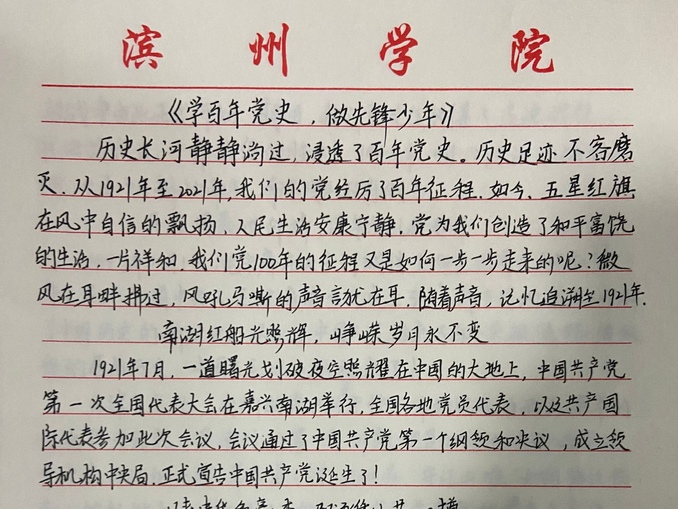 滨州学院
《学百年党史，做先锋少年》
历史长河静静淌过，浸透了百年党史。历史足迹不容磨
灭，从1921年至2021年，我们的党经历了百年征程，如今，五星红旗
在风中自信的飘扬，人民生活安康宁静，党为我们创造了和平富饶
的生活，一片祥和，我们党100年的征程又是如何一步一步走来的呢？微
风在耳畔拂过，风吼马嘶的声音言犹在耳，随着声音，记忆追溯至1921年.
南湖红船光照辉，峥嵘岁月永不变
1921年7月，一道曙光划破夜空照耀在中国的大地上，中国共产党
第一次全国代表大会在嘉兴南湖举行，全国各地党员代表，以及共产国
际代表参加此次会议，会议通过了中国共产党第一个纲领和决议，成立领
导机构中央局，正式宣告中国共产党诞生了！